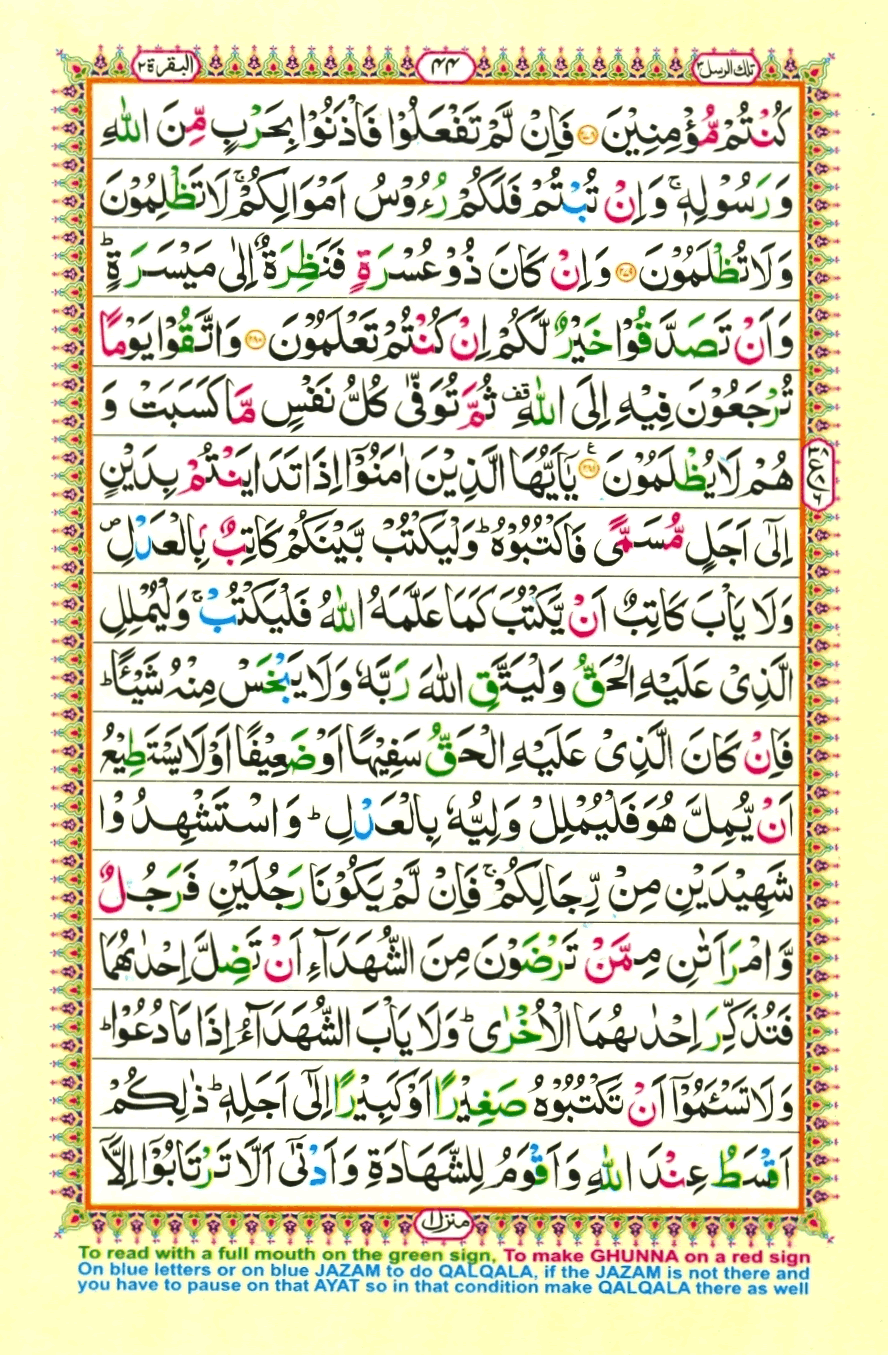 تلك الرسل ٣ ٤٤ البقرة ٢
كُنْتُمْ مُّؤْمِنِيْنَ ۝٢٧٨ فَاِنْ لَّمْ تَفْعَلُوْا فَاْذَنُوْا بِحَرْبٍ مِّنَ اللّٰهِ
وَرَسُوْلِهٖ ۚ وَاِنْ تُبْتُمْ فَلَكُمْ رُءُوْسُ اَمْوَالِكُمْ ۚ لَا تَظْلِمُوْنَ
وَلَا تُظْلَمُوْنَ ۝٢٧٩ وَاِنْ كَانَ ذُوْ عُسْرَةٍ فَنَظِرَةٌ اِلٰى مَيْسَرَةٍ ؕ
وَاَنْ تَصَدَّقُوْا خَيْرٌ لَّكُمْ اِنْ كُنْتُمْ تَعْلَمُوْنَ ۝٢٨٠ وَاتَّقُوْا يَوْمًا
تُرْجَعُوْنَ فِيْهِ اِلَى اللّٰهِ ۗقف ثُمَّ تُوَفّٰى كُلُّ نَفْسٍ مَّا كَسَبَتْ وَ
هُمْ لَا يُظْلَمُوْنَ ۝٢٨١ۧ يٰۤاَيُّهَا الَّذِيْنَ اٰمَنُوْۤا اِذَا تَدَايَنْتُمْ بِدَيْنٍ
اِلٰۤى اَجَلٍ مُّسَمًّى فَاكْتُبُوْهُ ؕ وَلْيَكْتُبْ بَّيْنَكُمْ كَاتِبٌۢ بِالْعَدْلِ ۪
وَلَا يَاْبَ كَاتِبٌ اَنْ يَّكْتُبَ كَمَا عَلَّمَهُ اللّٰهُ فَلْيَكْتُبْ ۚ وَلْيُمْلِلِ
الَّذِىْ عَلَيْهِ الْحَقُّ وَلْيَتَّقِ اللّٰهَ رَبَّهٗ وَلَا يَبْخَسْ مِنْهُ شَيْـًٔا ؕ
فَاِنْ كَانَ الَّذِىْ عَلَيْهِ الْحَقُّ سَفِيْهًا اَوْ ضَعِيْفًا اَوْ لَا يَسْتَطِيْعُ
اَنْ يُّمِلَّ هُوَ فَلْيُمْلِلْ وَلِيُّهٗ بِالْعَدْلِ ؕ وَاسْتَشْهِدُوْا
شَهِيْدَيْنِ مِنْ رِّجَالِكُمْ ۚ فَاِنْ لَّمْ يَكُوْنَا رَجُلَيْنِ فَرَجُلٌ
وَّامْرَاَتٰنِ مِمَّنْ تَرْضَوْنَ مِنَ الشُّهَدَآءِ اَنْ تَضِلَّ اِحْدٰىهُمَا
فَتُذَكِّرَ اِحْدٰىهُمَا الْاُخْرٰى ؕ وَلَا يَاْبَ الشُّهَدَآءُ اِذَا مَا دُعُوْا ؕ
وَلَا تَسْـَٔمُوْۤا اَنْ تَكْتُبُوْهُ صَغِيْرًا اَوْ كَبِيْرًا اِلٰۤى اَجَلِهٖ ؕ ذٰلِكُمْ
اَقْسَطُ عِنْدَ اللّٰهِ وَاَقْوَمُ لِلشَّهَادَةِ وَاَدْنٰۤى اَلَّا تَرْتَابُوْۤا اِلَّاۤ
منزل ١
To read with a full mouth on the green sign, To make GHUNNA on a red sign
On blue letters or on blue JAZAM to do QALQALA, if the JAZAM is not there and
you have to pause on that AYAT so in that condition make QALQALA there as well